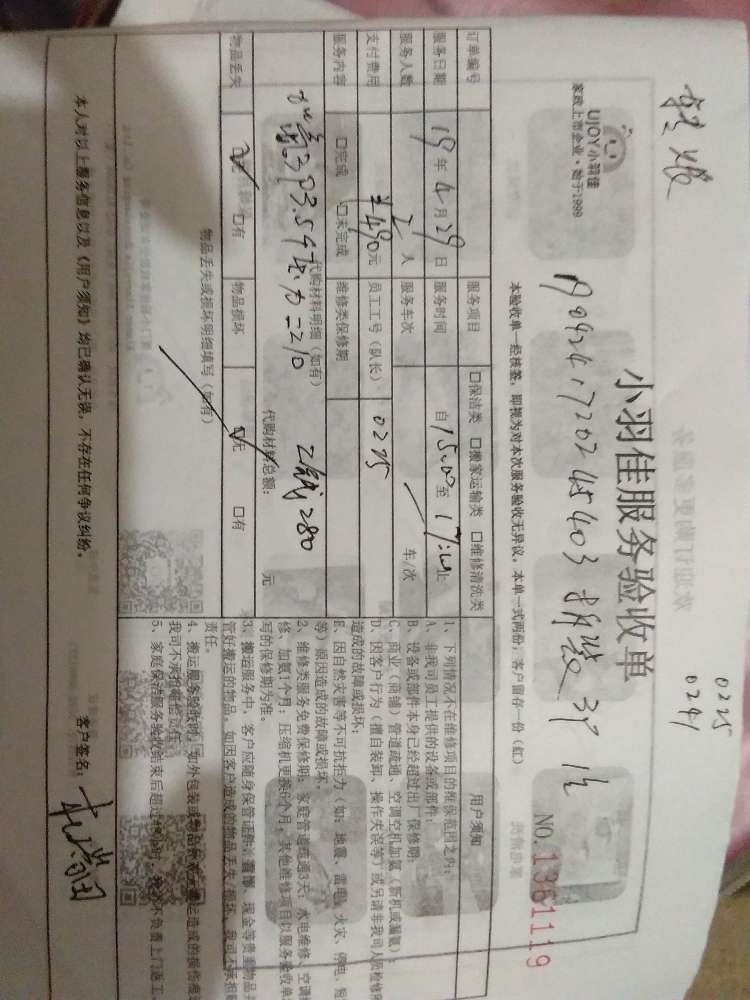 0225
0241
小羽佳服务验收单
UJOY小羽佳
家政上市企业·始于1999
NO.1361119
本验收单一经核签，即视为对本次服务验收无异议，本单一式两份，客户留存一份（红）
订单编号
服务项目 □保洁类 □搬家运输类 □维修清洗类
用户须知
服务日期 19年4月29日 服务时间 自15:00至17:00止
服务人数 2人 服务车次 车/次
支付费用 ¥490元 员工工号（队长） 0225
服务内容 □完成 □未完成 维修类保修期
代购材料明细（如有） 代购材料总额： 元
3P3.5 =210 280
物品丢失 □无 □有 物品损坏 □无 □有
物品丢失或损坏明细填写（如有）
1、下列情况不在维修项目的担保范围之内：
A、非我司员工提供的设备或部件；
B、设备或部件本身已经超过出厂保修期；
C、商业（商铺）管道疏通、空调空机加氨（新机或漏氨）；
D、因客户行为（擅自装卸、操作失误等）或另请非我司人员检修所
造成的故障或损坏；
E、因自然灾害等不可抗拒力（如：地震、雷电、火灾、停电、短
等）原因造成的故障或损坏。
2、维修类服务免费保修期：家庭管道疏通3天；水电维修、空调
修、加氨1个月；压缩机更换6个月，其他维修项目以服务验收单
写的保修期为准。
3、搬运服务中，客户应随身保管证件、首饰、现金等贵重物品并
管好搬运的物品。如因客户造成的物品丢失、损坏，我司不承担
责任。
4、搬运服务验收时，如外包装或物品
我司不承担赔偿责任。
5、家庭保洁服务验收结束后超过
本人对以上服务信息以及《用户须知》均已确认无误，不存在任何争议纠纷。 客户签名：